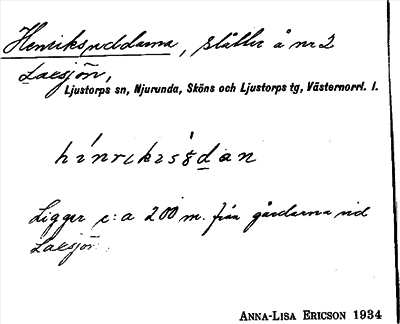 Henriksuddarna, slåtter å nr 2
Laxsjön,
Ljustorps sn, Njurunda, Sköns och Ljustorps tg, Västernorrl. l.
Ligger c:a 200 m. från gårdarna vid
Laxsjön.
ANNA-LISA ERICSON 1934